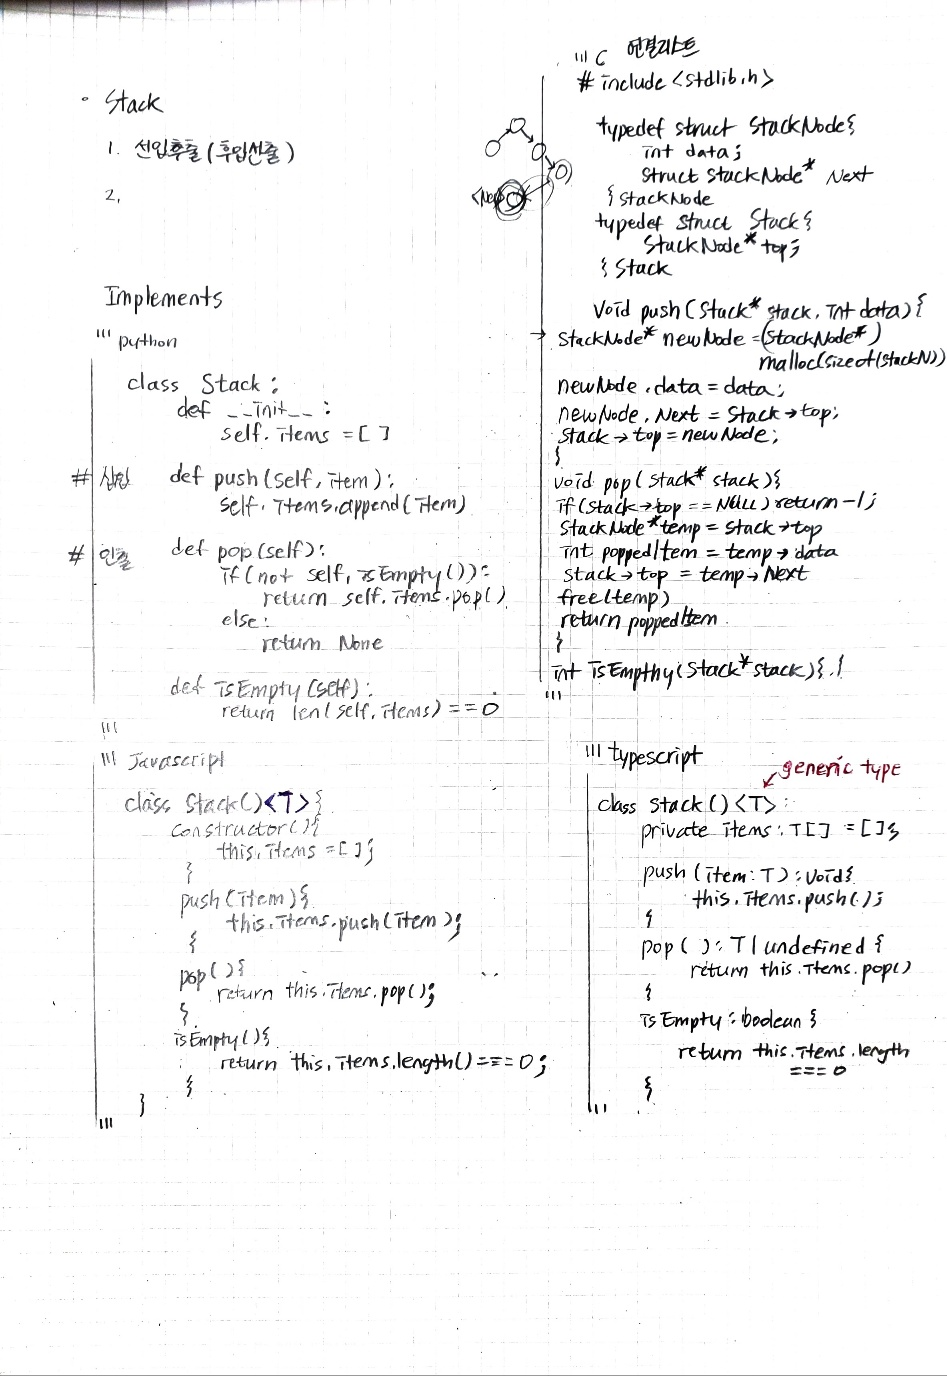 • Stack
1. 선입후출 (후입선출)
2.
Implements
''' python
class Stack :
def __init__ :
self.items = [ ]
# 삽입 def push(self, item) :
self.items.append(item)
# 인출 def pop(self) :
if(not self.isEmpty()) :
return self.items.pop()
else :
return None
def isEmpty(self) :
return len(self.items) == 0
'''
''' Javascript
class Stack()<T>{
constructor(){
this.items = [ ];
}
push(item){
this.items.push(item);
}
pop(){
return this.items.pop();
}
isEmpty(){
return this.items.length() === 0;
}
}
'''
''' C 연결리스트
# include <stdlib.h>
typedef struct StackNode{
int data;
struct StackNode* Next
} StackNode
typedef struct Stack{
StackNode* top;
} Stack
void push(Stack* stack, int data){
→ StackNode* newNode = (StackNode*)
malloc(sizeof(StackN))
newNode.data = data;
newNode.Next = Stack→top;
Stack→top = newNode;
}
void pop(Stack* stack){
if(Stack→top == NULL) return -1;
StackNode* temp = stack→top
int poppedItem = temp→data
stack→top = temp→Next
free(temp)
return poppedItem
}
int isEmpthy(Stack* stack){ }
'''
''' typescript
generic type
class Stack()<T> :
private items : T[] = [ ];
push (item : T) : void{
this.items.push( );
}
pop( ) : T | undefined {
return this.items.pop()
}
isEmpty : boolean {
return this.items.length
=== 0
}
'''